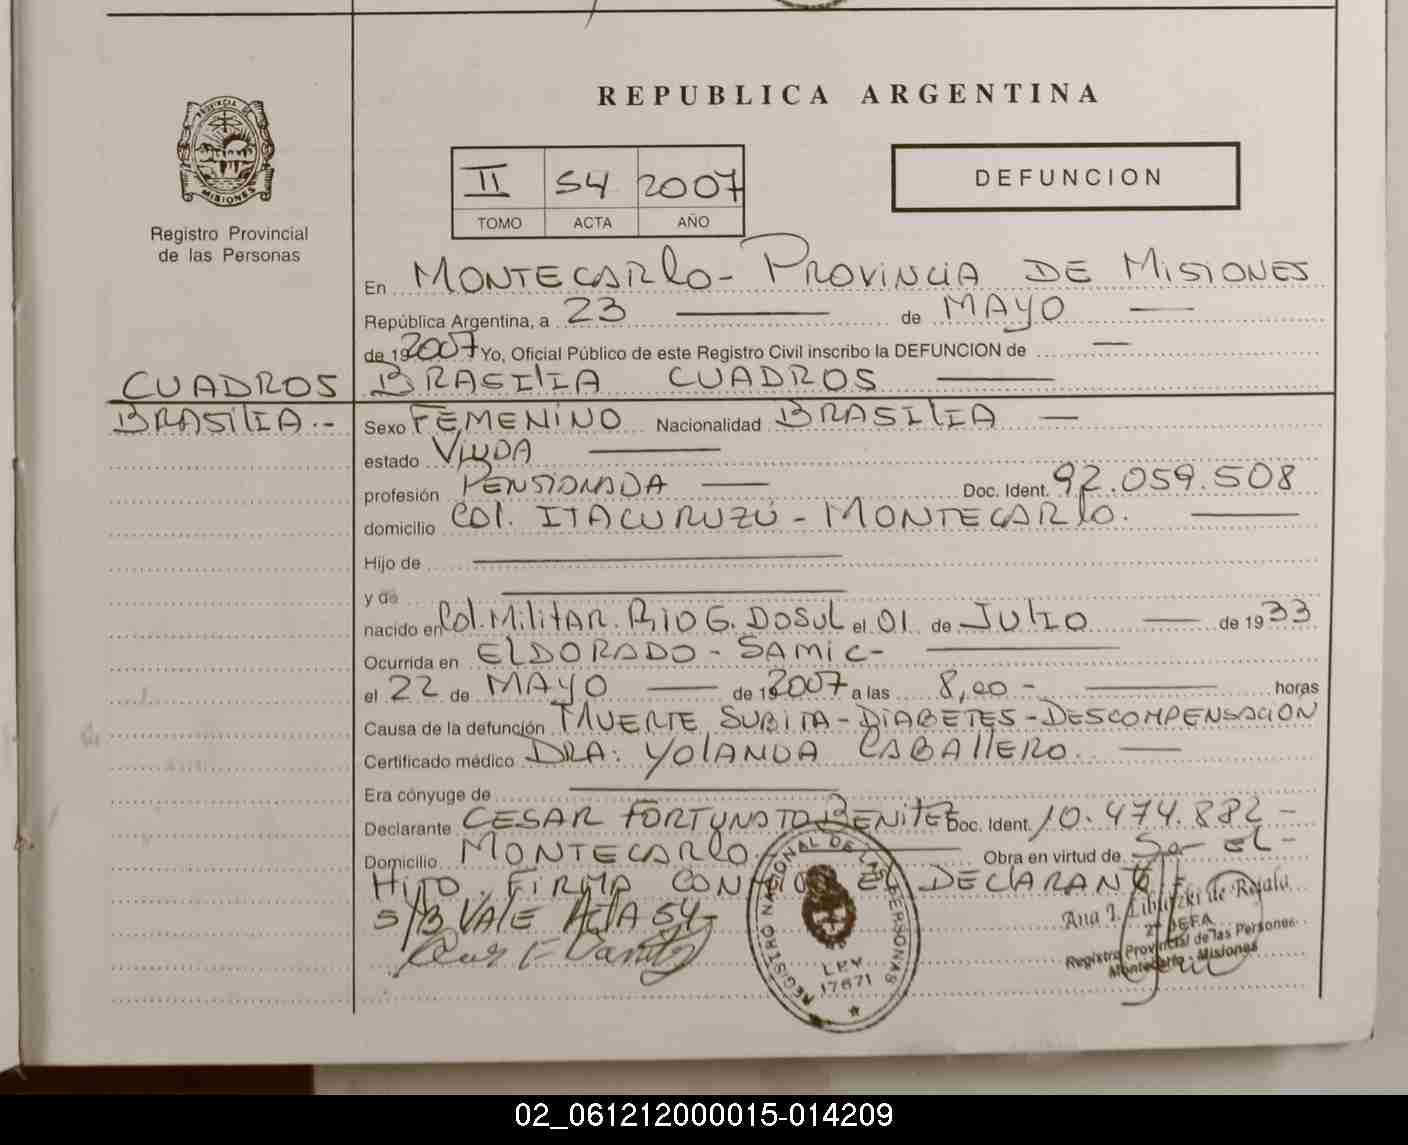 REPUBLICA ARGENTINA
PROVINCIA DE
MISIONES
Registro Provincial
de las Personas
II 54 2007
TOMO ACTA AÑO
DEFUNCION
En MONTECARLO - PROVINCIA DE MISIONES
República Argentina, a 23 de MAYO
de 192007 Yo, Oficial Público de este Registro Civil inscribo la DEFUNCION de
CUADROS BRASILIA CUADROS
BRASILIA.- Sexo FEMENINO Nacionalidad BRASILIA
estado VIUDA
profesión PENSIONADA Doc. Ident. 92.059.508
domicilio COL. ITACURUZÚ - MONTECARLO.
Hijo de
y de
nacido en Col. Militar. RIO G. DOSUL el 01 de JULIO de 1933
Ocurrida en ELDORADO - SAMIC -
el 22 de MAYO de 192007 a las 8,00 - horas
Causa de la defunción MUERTE SUBITA - DIABETES - DESCOMPENSACION
Certificado médico DRA: YOLANDA CABALLERO.
Era cónyuge de
Declarante CESAR FORTUNATO BENITEZ Doc. Ident. 10.474.882 -
Domicilio MONTECARLO. Obra en virtud de Ser EL -
HIJO. FIRMA CONMIGO EL DECLARANTE
S/B VALE ACTA 54
REGISTRO NACIONAL DE LAS PERSONAS
LEY
17671
Ana I. de Rejala
2ª JEFA
Registro Provincial de las Personas
Montecarlo - Misiones
02_061212000015-014209